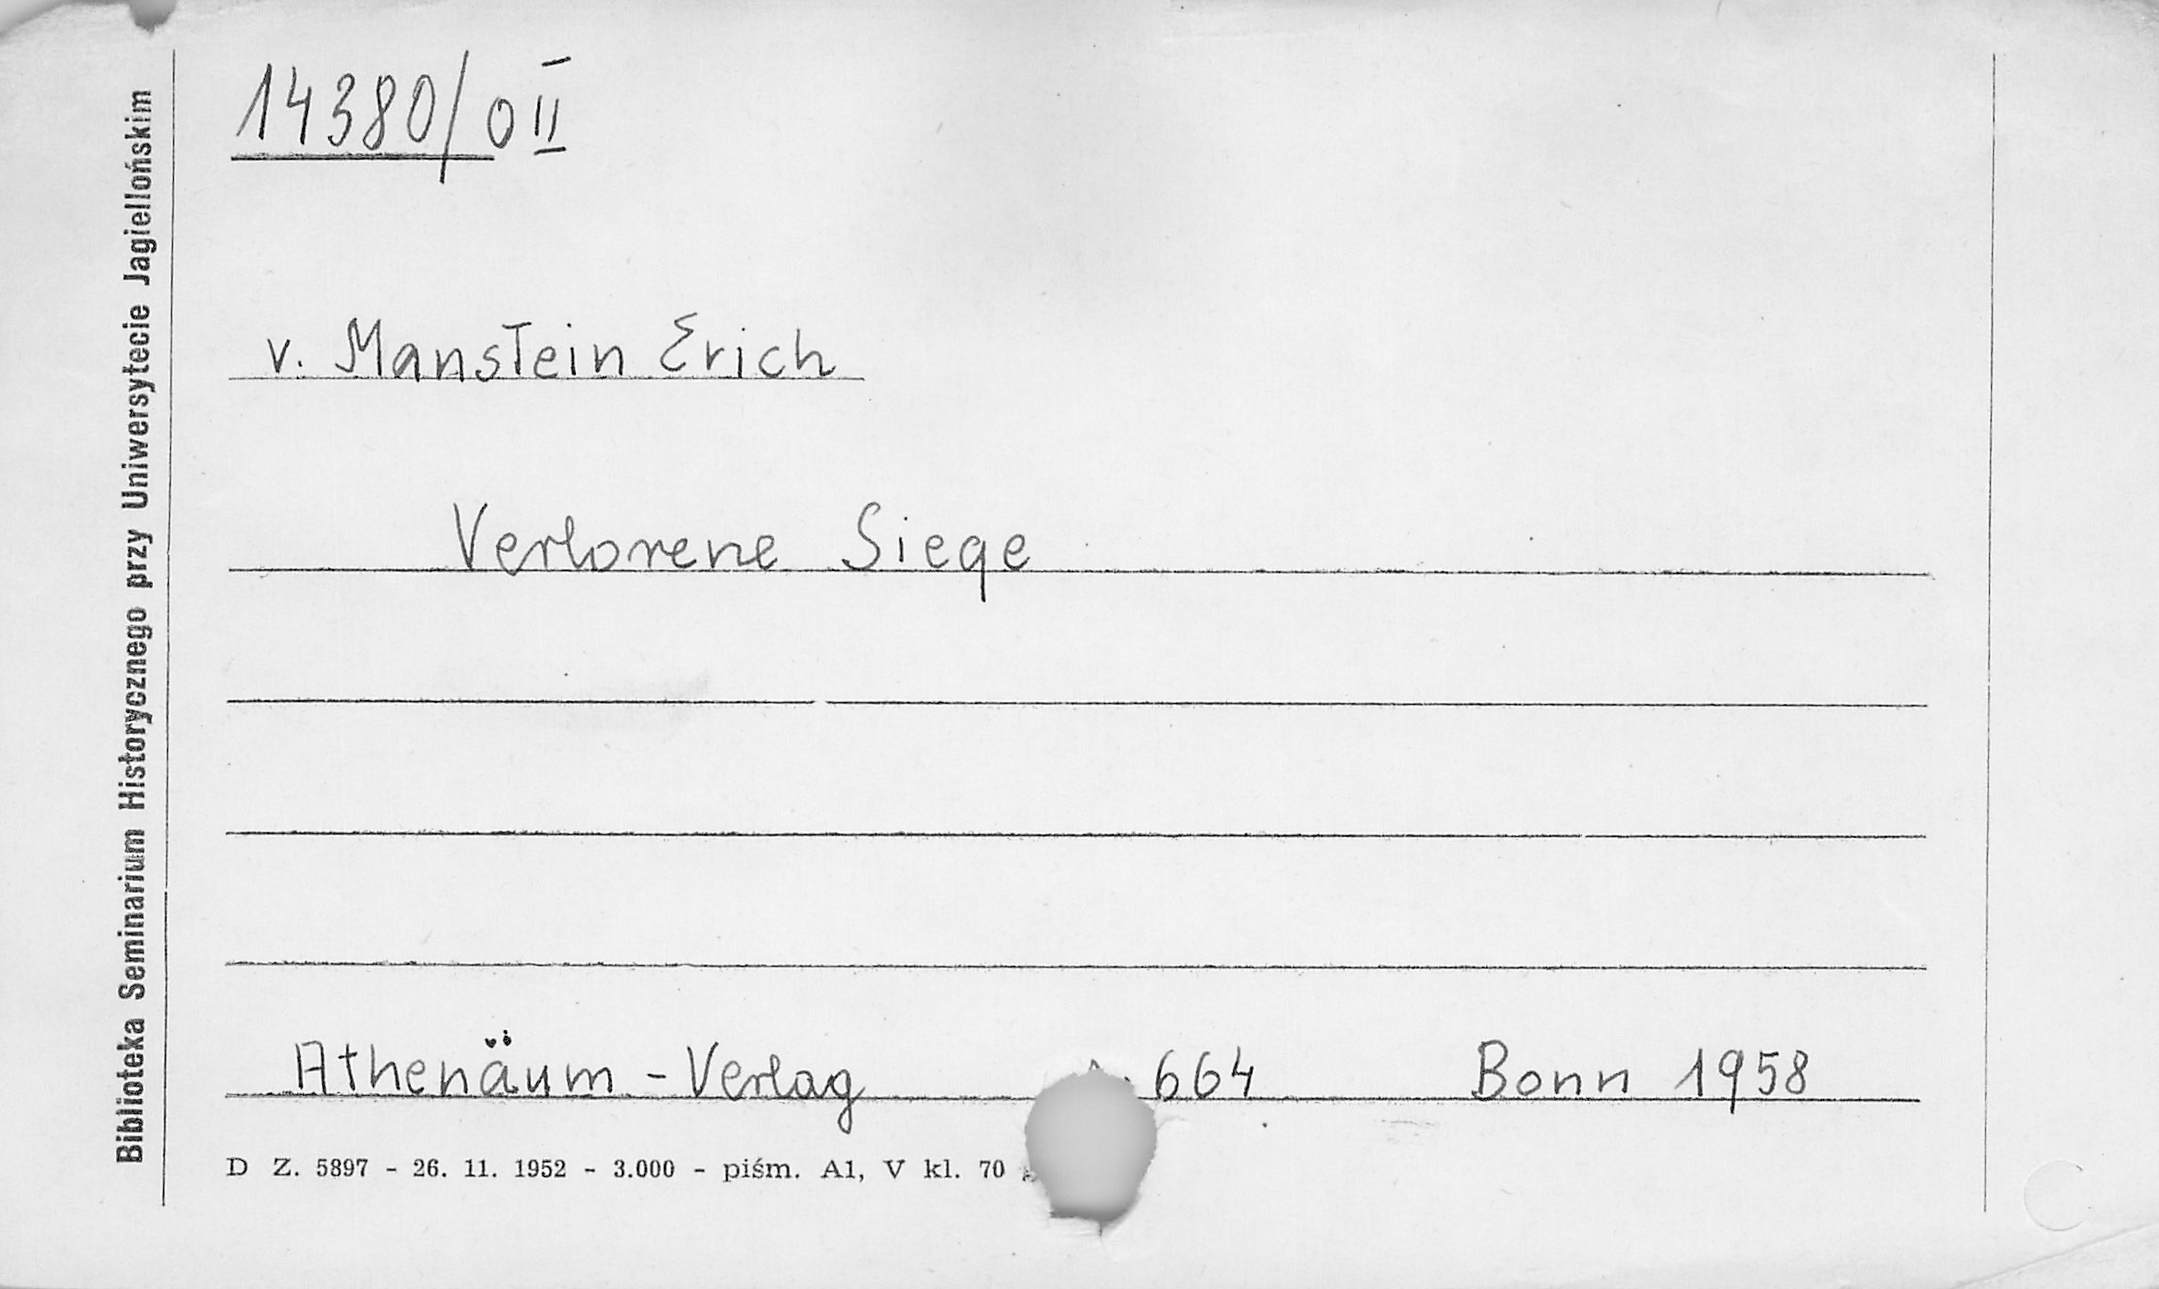 Biblioteka Seminarium Historycznego przy Uniwersytecie Jagiellońskim
14380/0 II
v. Manstein Erich
Verlorene Siege
Athenäum - Verlag 664 Bonn 1958
D Z. 5897 - 26. 11. 1952 - 3.000 - piśm. A1, V kl. 70